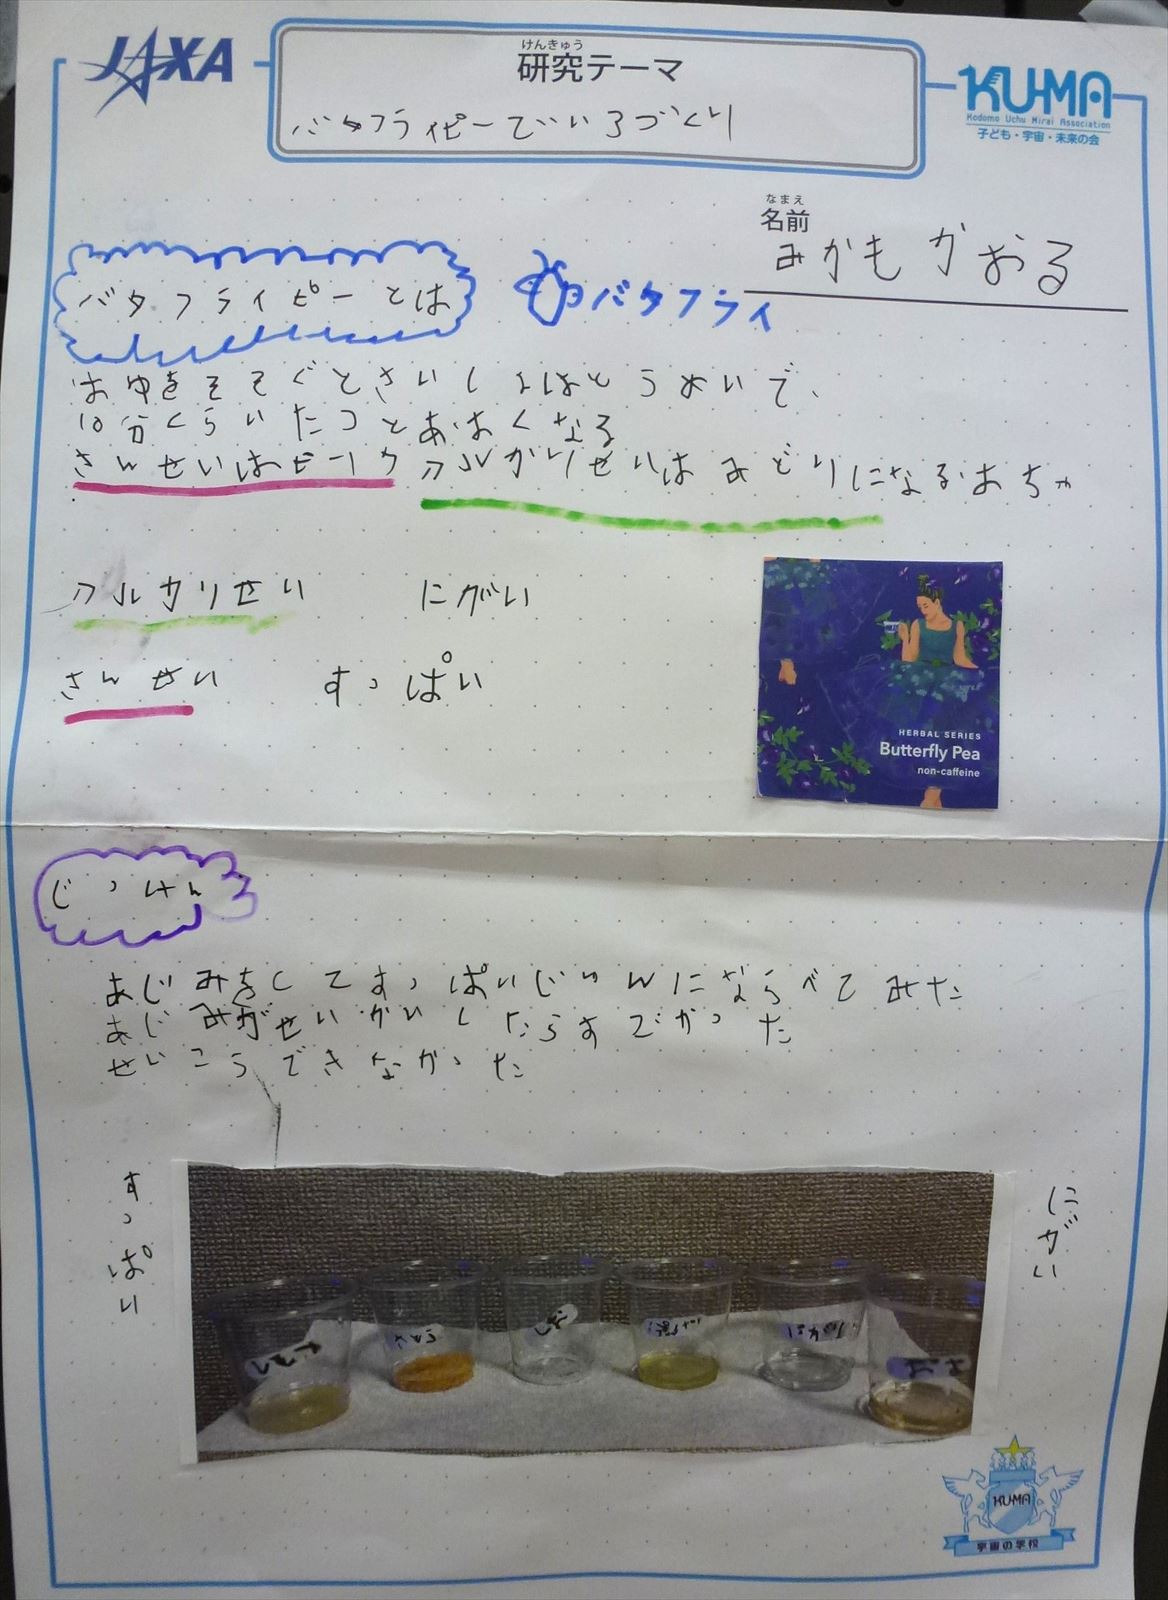 JAXA
けんきゅう
研究テーマ
バタフライピーでいろづくり
KU-MA
Kodomo Uchu Mirai Association
子ども・宇宙・未来の会
なまえ
名前
みかもかおる
バタフライピーとは
バタフライ
おゆをそそぐとさいしょはとうめいで、
10分くらいたつとあおくなる
さんせいはピンク アルカリせいはみどりになるおちゃ
アルカリせい にがい
さんせい すっぱい
HERBAL SERIES
Butterfly Pea
non-caffeine
じっけん
あじみをしてすっぱいじゅんにならべてみた
あじみがせいかいしたらすでかった
せいこうできなかった
すっぱい
にがい
KU-MA
宇宙の学校